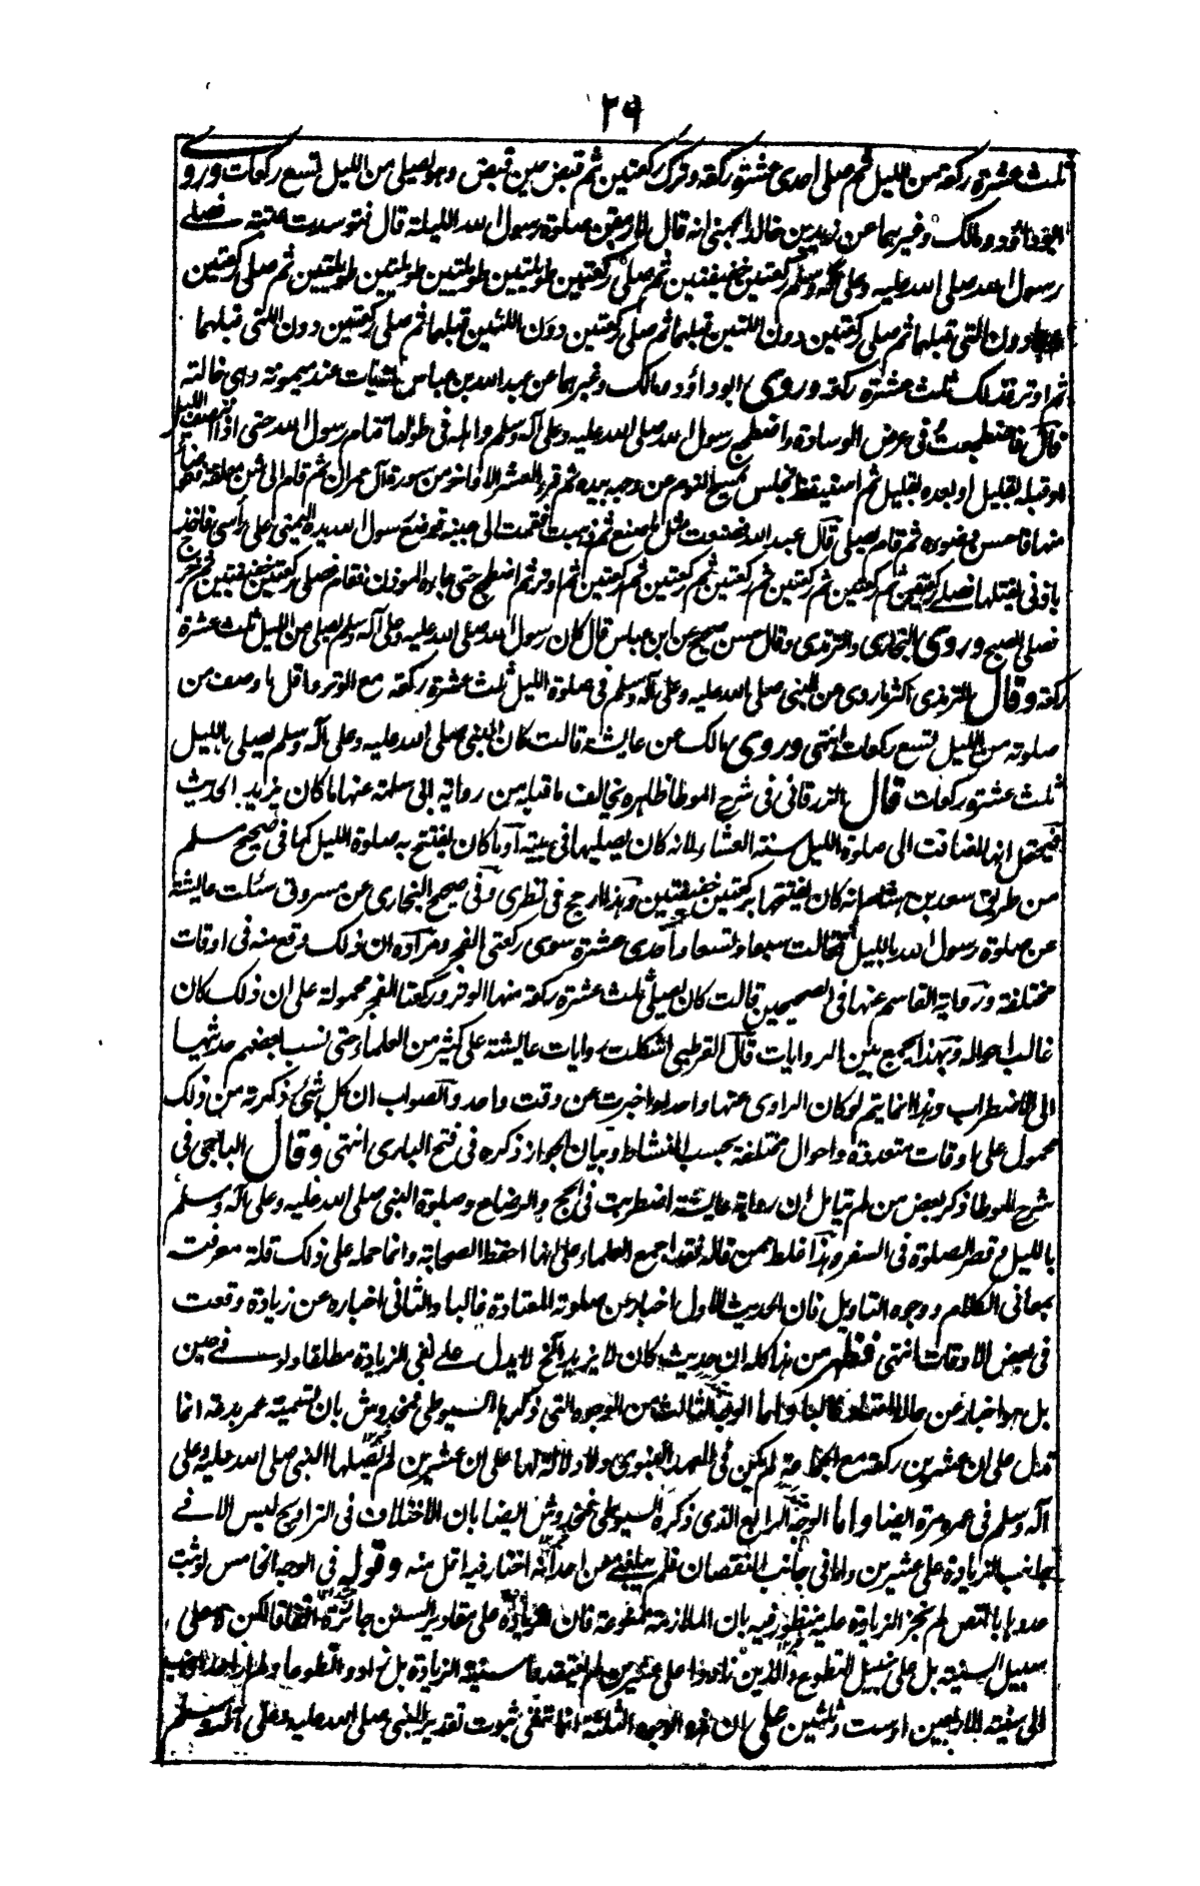 ٢٩
ثلث عشرة ركعة من الليل ثم صلى احدى عشرة ركعة وترك ركعتين ثم قبض حين قبض وهو يصلى من الليل تسع ركعات وروى
ابوداؤد ومالك وغيرهما عن زيد بن خالد الجهنى انه قال لارمقن صلوة رسول الله الليلة قال فتوسدت عتبته فصلے
رسول الله صلى الله عليه وعلى آله وسلم ركعتين خفيفتين ثم صلى ركعتين طويلتين طويلتين طويلتين ثم صلى ركعتين
دون التى قبلها ثم صلى ركعتين دون اللتين قبلهما ثم صلى ركعتين دون اللتين قبلهما ثم صلى ركعتين دون اللتى قبلهما
ثم اوتر فذلك ثلث عشرة ركعة وروى ابوداؤد ومالك وغيرهما عن عبدالله بن عباس انه بات عند ميمونة وهى خالته
قال فاضطجعت فى عرض الوسادة واضطجع رسول الله صلى الله عليه وعلى آله وسلم واهله فى طولها فنام رسول الله حتى اذا انتصف الليل
او قبله بقليل او بعده بقليل ثم استيقظ فجلس يمسح النوم عن وجهه بيده ثم قرأ العشر الاواخر من سورة آل عمران ثم قام الى شن معلقة فتوضأ
منها فاحسن وضوءه ثم قام يصلى قال عبد الله فصنعت مثل ما صنع ثم ذهبت فقمت الى جنبه فوضع رسول الله يده اليمنى على رأسى فاخذ
باذنى يفتلها فصلے ركعتين ثم ركعتين ثم ركعتين ثم ركعتين ثم ركعتين ثم ركعتين ثم اوتر ثم اضطجع حتى جاءه الموذن فقام فصلى ركعتين خفيفتين ثم خرج
فصلى الصبح وروى البخارى والترمذى وقال حسن صحيح عن ابن عباس قال كان رسول الله صلى الله عليه وعلى آله وسلم يصلى من الليل ثلث عشرة
ركعة وقال الترمذى اكثر ما روى عن النبى صلى الله عليه وعلى آله وسلم فى صلوة الليل ثلث عشرة ركعة مع الوتر واقل ما وصف من
صلوته من الليل تسع ركعات انتهى وروى مالك عن عايشة قالت كان النبى صلى الله عليه وعلى آله وسلم يصلى بالليل
ثلث عشرة ركعات قال الزرقانى فى شرح الموطا ظاهره يخالف ما قبله من رواية ابى سلمة عنها ما كان يزيد الحديث
فيحتمل انها اضافت الى صلوة الليل سنة العشاء لانه كان يصليها فى بيته او ما كان يفتتح به صلوة الليل كما فى صحيح مسلم
من طريق سعد بن هشام انه كان يفتتحها بركعتين خفيفتين وهذا ارجح فى نظرى وفى صحيح البخارى عن مسروق سئلت عايشة
عن صلوة رسول الله بالليل فقالت سبعا وتسعا واحدى عشرة سوى ركعتى الفجر ومراده ان ذلك وقع منه فى اوقات
مختلفة ورواية القاسم عنها فى الصحيحين قالت كان يصلى ثلث عشرة ركعة منها الوتر وركعتا الفجر محمولة على ان ذلك كان
غالب احواله وبهذا يجمع بين الروايات قال القرطبى اشكلت روايات عايشة على كثير من العلماء حتى نسب بعضهم حديثها
الى الاضطراب وهذا انما يتم لو كان الراوى عنها واحدا واخبرت عن وقت واحد والصواب ان كل شئ ذكرته من ذلك
محمول على اوقات متعددة واحوال مختلفة بحسب النشاط وبيان الجواز ذكره فى فتح البارى انتهى وقال الباجى فى
شرح الموطا ذكر بعض من لم يتامل ان رواية عايشة اضطربت فى الحج والرضاع وصلوة النبى صلى الله عليه وعلى آله وسلم
بالليل وقصر الصلوة فى السفر وهذا غلط ممن قاله فقد اجمع العلماء على انها احفظ الصحابة وانما حمله على ذلك قلة معرفته
بمعانى الكلام ووجوه التاويل فان الحديث الاول اخبار عن صلوته المعتادة غالبا والثانى اخباره عن زيادة وقعت
فى بعض الاوقات انتهى فظهر من هذا كله ان حديث ما كان لا يزيد الخ لا يدل علے نفى الزيادة مطلقا ولو فے حين
بل هو اخبار عن حاله المعتاد غالبا واما الوجه الثالث من الوجوه التى ذكرها السيوطى فمخدوش بان تسميته عمر بدعة انما
تدل على ان عشرين ركعة مع الجماعة لم يكن فى العهد النبوى ولا دلالة لها على ان عشرين لم يصلها النبى صلى الله عليه وعلى
آله وسلم فى عمره مرة ايضا واما الوجه الرابع الذى ذكره السيوطى فمخدوش ايضا بان الاختلاف فى التراويح ليس الا فے
جانب الزيادة على عشرين واما فى جانب النقصان فلم يبلغنے عن احد انه اختار فيه اقل منه وقوله فى الوجه الخامس لو ثبت
عددها بالنص لم تجز الزيادة عليه منظور فيه بان الملازمة ممنوعة فان الزيادة على مقادير السنن جائزة اتفاقا لكن لا على
سبيل السنية بل على سبيل التطوع والذين زادوا على عشرين لم يعتقدوا سنية الزيادة بل زادوا تطوعا
الى سنية الاربعين او ست وثلثين على ان هذه الوجوه الثلثة انما تنفى ثبوت تقدير النبى صلى الله عليه وعلى آله وسلم